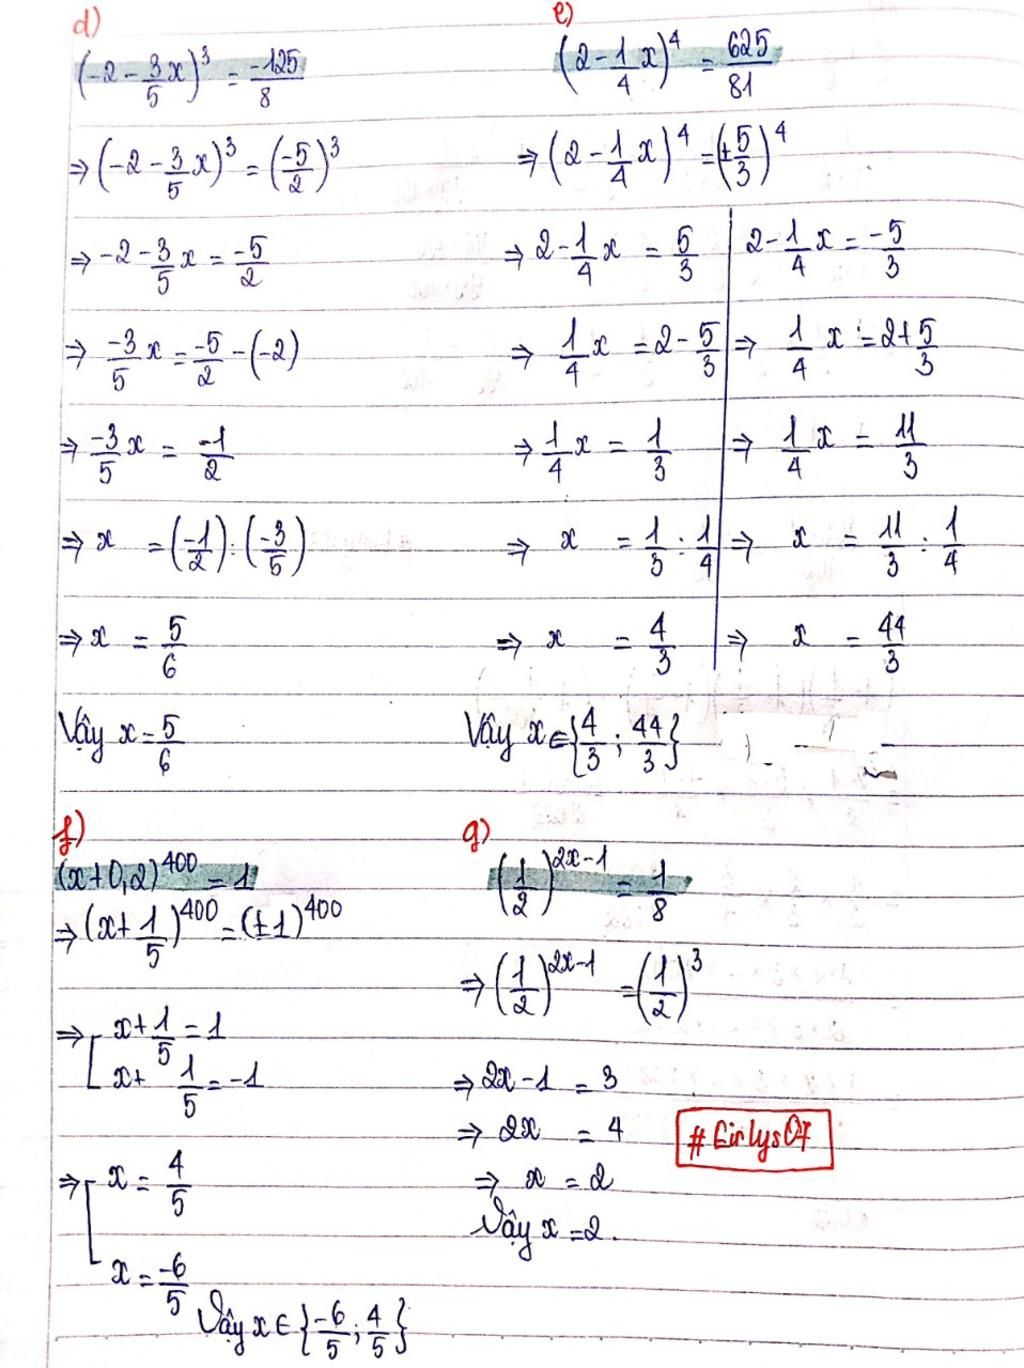 d)
(-2 - 3/5 x)³ = -125/8
⇒ (-2 - 3/5 x)³ = (-5/2)³
⇒ -2 - 3/5 x = -5/2
⇒ -3/5 x = -5/2 - (-2)
⇒ -3/5 x = -1/2
⇒ x = (-1/2) : (-3/5)
⇒ x = 5/6
Vậy x = 5/6
e)
(2 - 1/4 x)⁴ = 625/81
⇒ (2 - 1/4 x)⁴ = (±5/3)⁴
⇒ 2 - 1/4 x = 5/3 | 2 - 1/4 x = -5/3
⇒ 1/4 x = 2 - 5/3 | ⇒ 1/4 x = 2 + 5/3
⇒ 1/4 x = 1/3 | ⇒ 1/4 x = 11/3
⇒ x = 1/3 : 1/4 | ⇒ x = 11/3 : 1/4
⇒ x = 4/3 | ⇒ x = 44/3
Vậy x ∈ {4/3 ; 44/3}
f)
(x + 0,2)⁴⁰⁰ = 1
⇒ (x + 1/5)⁴⁰⁰ = (±1)⁴⁰⁰
⇒ [ x + 1/5 = 1
x + 1/5 = -1
⇒ [ x = 4/5
x = -6/5
Vậy x ∈ {-6/5 ; 4/5}
g)
(1/2)²ˣ⁻¹ = 1/8
⇒ (1/2)²ˣ⁻¹ = (1/2)³
⇒ 2x - 1 = 3
⇒ 2x = 4
⇒ x = 2
Vậy x = 2.
#Girlys07